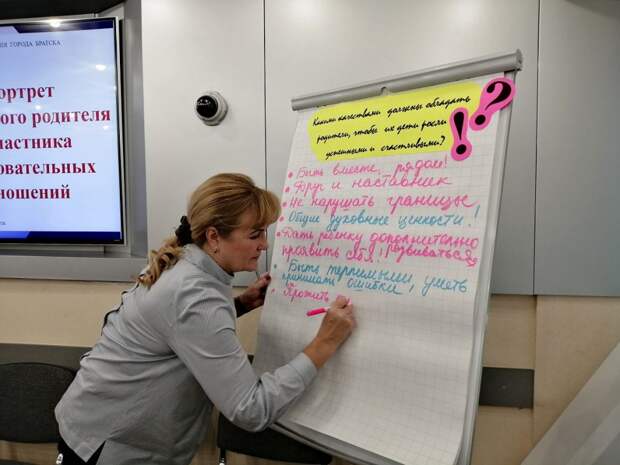 ИЯ ГОРОДА БРАТСКА
ортрет
ого родителя
астника
овательных
ношений
Какими качествами должны обладать
родители, чтобы их дети росли
успешными и счастливыми?
!?
• Быть вместе, рядом!
• Друг и наставник
• Не нарушать границы
• Общие духовные ценности!
• Дать ребёнку дополнительно
проявить себя, развиваться
• Быть терпимыми, уметь
принимать ошибки,